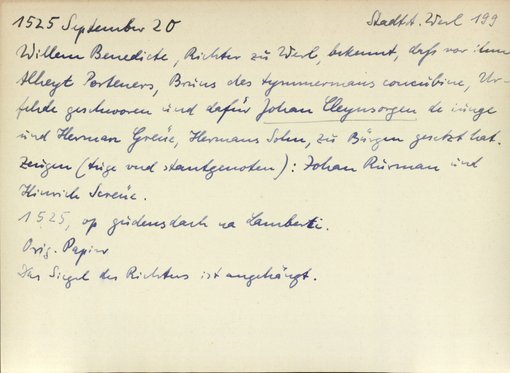 1525 September 20 Stadtt. Werl 199
Willem Benedicte, Richter zu Werl, bekennt, daß vor item
Alheyt Porteners, Bruns des tymmermans concubine, Ur-
fehde geschworen und dafür Johan Cleynsorgen de iunge
und Herman Greue, Hermans Sohn, zu Bürgen gesetzt hat.
Zeugen (tüge und stantgenoten): Johan Rurman und
Hinrich Sereue.
1525, op gudensdach na Lamberti.
Orig. Papier
Das Siegel des Richters ist angehängt.